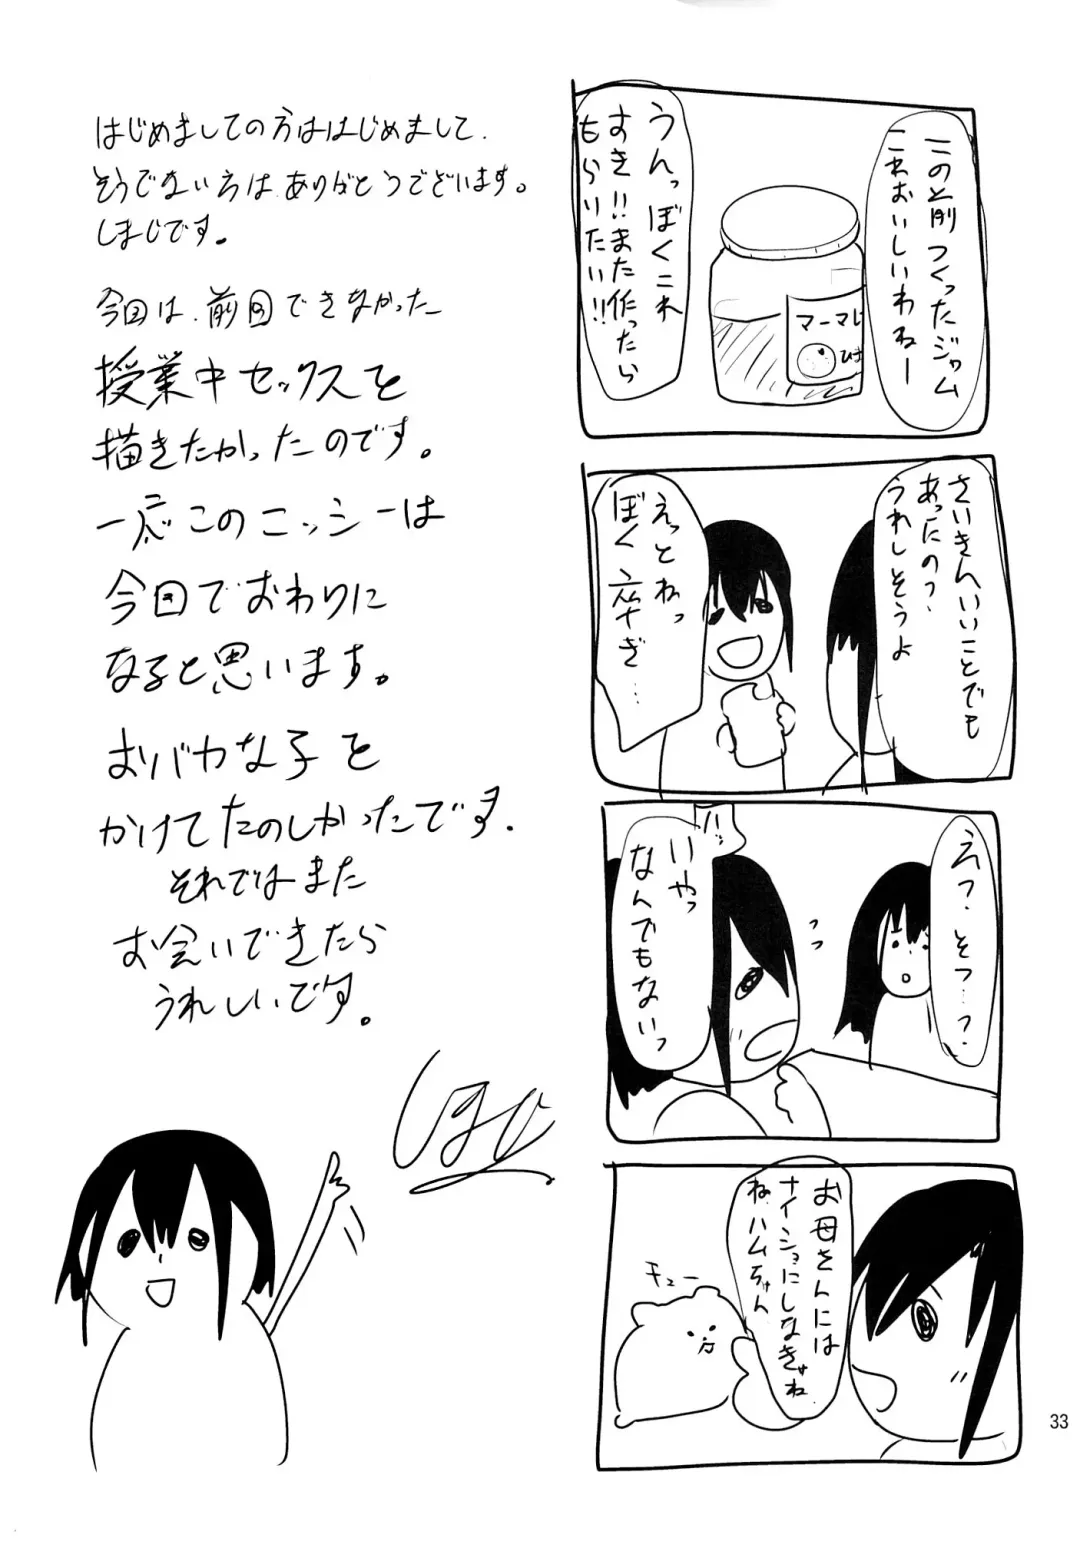 この前つくったジャム
これおいしいわねー
うんっぼくこれ
すき!!また作ったら
もらいたい!!
マーマレ
ひま
さいきんいいことでも
あったの?
うれしそうよ
えっとねっ
ぼく卒ぎ…
えっ?そつ…っ?
ハッ
いやっ
なんでもないっ
っっ
お母さんには
ナイショにしなきゃね
ね、ハムちゃん
チュー
はじめましての方ははじめまして、
そうでない方は、ありがとうでございます。
しまじです。
今回は、前回できなかった
授業中セックスを
描きたかったのです。
一応このニッシーは
今回でおわりに
なると思います。
おバカな子を
かけてたのしかったです、
それではまた
お会いできたら
うれしいです。
33